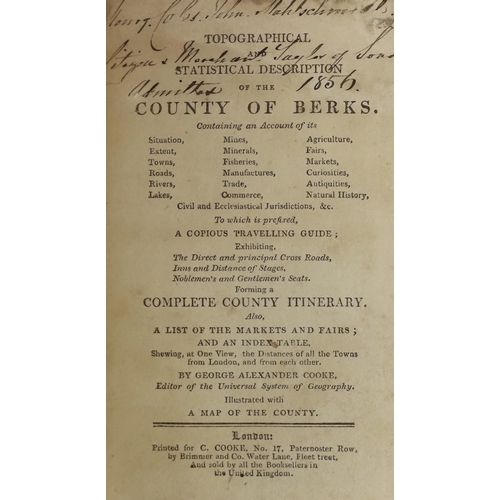 Henry Cole, John
TOPOGRAPHICAL
AND
Citizen & Merchant Taylor of
STATISTICAL DESCRIPTION
OF THE
Admitted 1856.
COUNTY OF BERKS.
Containing an Account of its
Situation, Mines, Agriculture,
Extent, Minerals, Fairs,
Towns, Fisheries, Markets,
Roads, Manufactures, Curiosities,
Rivers, Trade, Antiquities,
Lakes, Commerce, Natural History,
Civil and Ecclesiastical Jurisdictions, &c.
To which is prefixed,
A COPIOUS TRAVELLING GUIDE;
Exhibiting,
The Direct and principal Cross Roads,
Inns and Distance of Stages,
Noblemen's and Gentlemen's Seats.
Forming a
COMPLETE COUNTY ITINERARY.
Also,
A LIST OF THE MARKETS AND FAIRS;
AND AN INDEX TABLE,
Shewing, at One View, the Distances of all the Towns
from London, and from each other.
BY GEORGE ALEXANDER COOKE,
Editor of the Universal System of Geography.
Illustrated with
A MAP OF THE COUNTY.
London:
Printed for C. COOKE, No. 17, Paternoster Row,
by Brimmer and Co. Water Lane, Fleet treet,
And sold by all the Booksellers in
the United Kingdom.